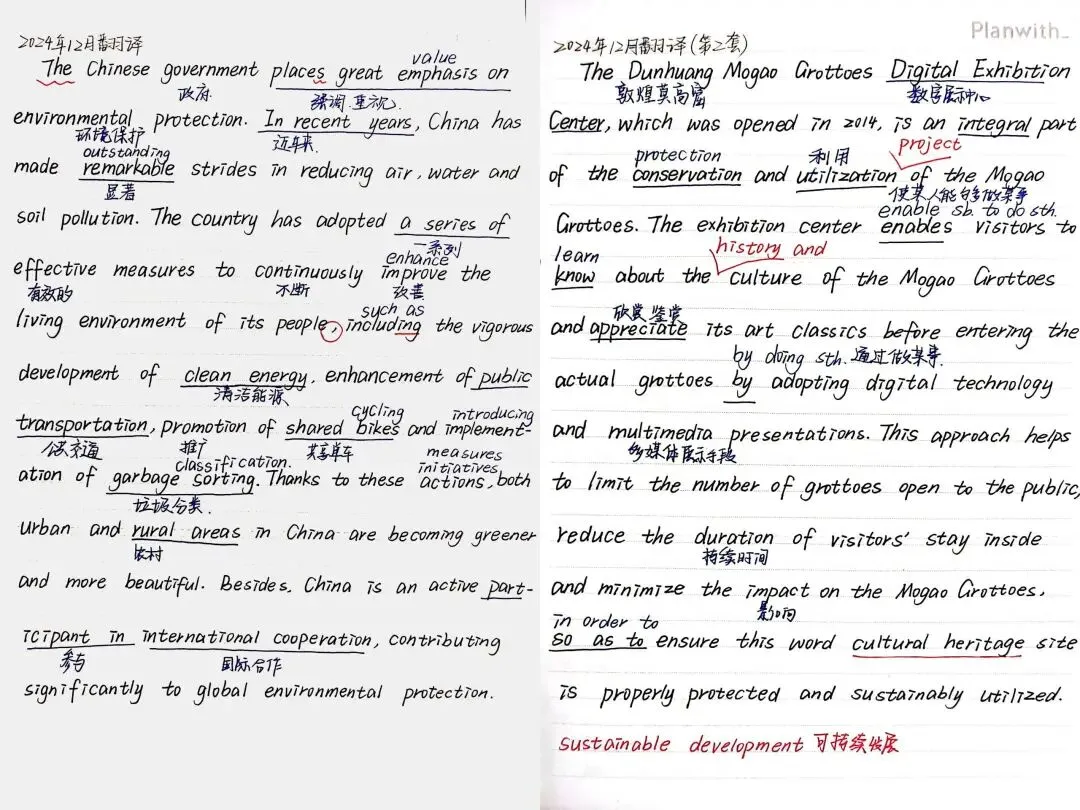 2024年12月翻译
value
The Chinese government places great emphasis on
政府 强调.重视
environmental protection. In recent years, China has
环境保护 近年来
outstanding
made remarkable strides in reducing air, water and
显著
soil pollution. The country has adopted a series of
一系列
enhance
effective measures to continuously improve the
有效的 不断 改善
such as
living environment of its people, including the vigorous
development of clean energy, enhancement of public
清洁能源
cycling introducing
transportation, promotion of shared bikes and implement-
公共交通 推广 共享单车 measures
classification. initiatives
ation of garbage sorting. Thanks to these actions, both
垃圾分类.
urban and rural areas in China are becoming greener
农村
and more beautiful. Besides, China is an active part-
icipant in international cooperation, contributing
参与 国际合作
significantly to global environmental protection.
Planwith_
2024年12月翻译(第2套)
The Dunhuang Mogao Grottoes Digital Exhibition
敦煌莫高窟 数字展示中心
Center, which was opened in 2014, is an integral part
protection 利用 project
of the conservation and utilization of the Mogao
使某人能够做某事
enable sb. to do sth.
Grottoes. The exhibition center enables visitors to
learn history and
know about the culture of the Mogao Grottoes
欣赏 鉴赏
and appreciate its art classics before entering the
by doing sth. 通过做某事.
actual grottoes by adopting digital technology
and multimedia presentations. This approach helps
多媒体展示手段
to limit the number of grottoes open to the public,
reduce the duration of visitors' stay inside
持续时间
and minimize the impact on the Mogao Grottoes,
in order to 影响
so as to ensure this word cultural heritage site
is properly protected and sustainably utilized.
sustainable development 可持续发展